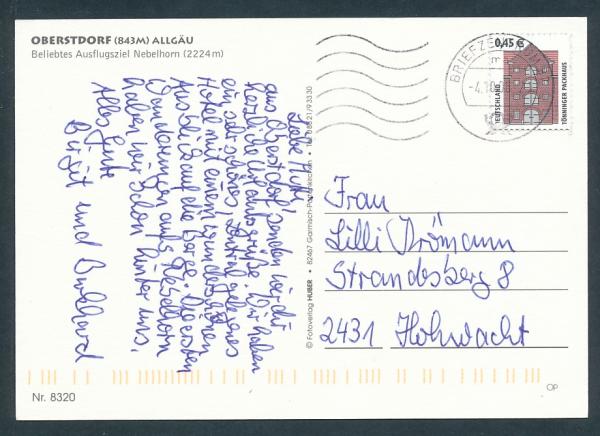 OBERSTDORF (843M) ALLGÄU
Beliebtes Ausflugsziel Nebelhorn (2224m)
Liebe Mutti,
aus Oberstdorf senden wir dir
herzliche Urlaubsgrüße. Wir haben
ein sehr schönes, zentral gelegenes
Hotel mit einem wunderschönen
Ausblick auf die Berge. Die ersten
Wanderungen aufs Nebelhorn
haben wir schon hinter uns.
Alles Gute
Birgit und Burkhard
© Fotoverlag HUBER • 82467 Garmisch-Partenkirchen • Tel. 08821/93330
BRIEFZENTRUM
-4.10.
0,45 €
DEUTSCHLAND
TÖNNINGER PACKHAUS
Frau
Lilli Drömann
Strandesberg 8
2431 Hohwacht
Nr. 8320
OP